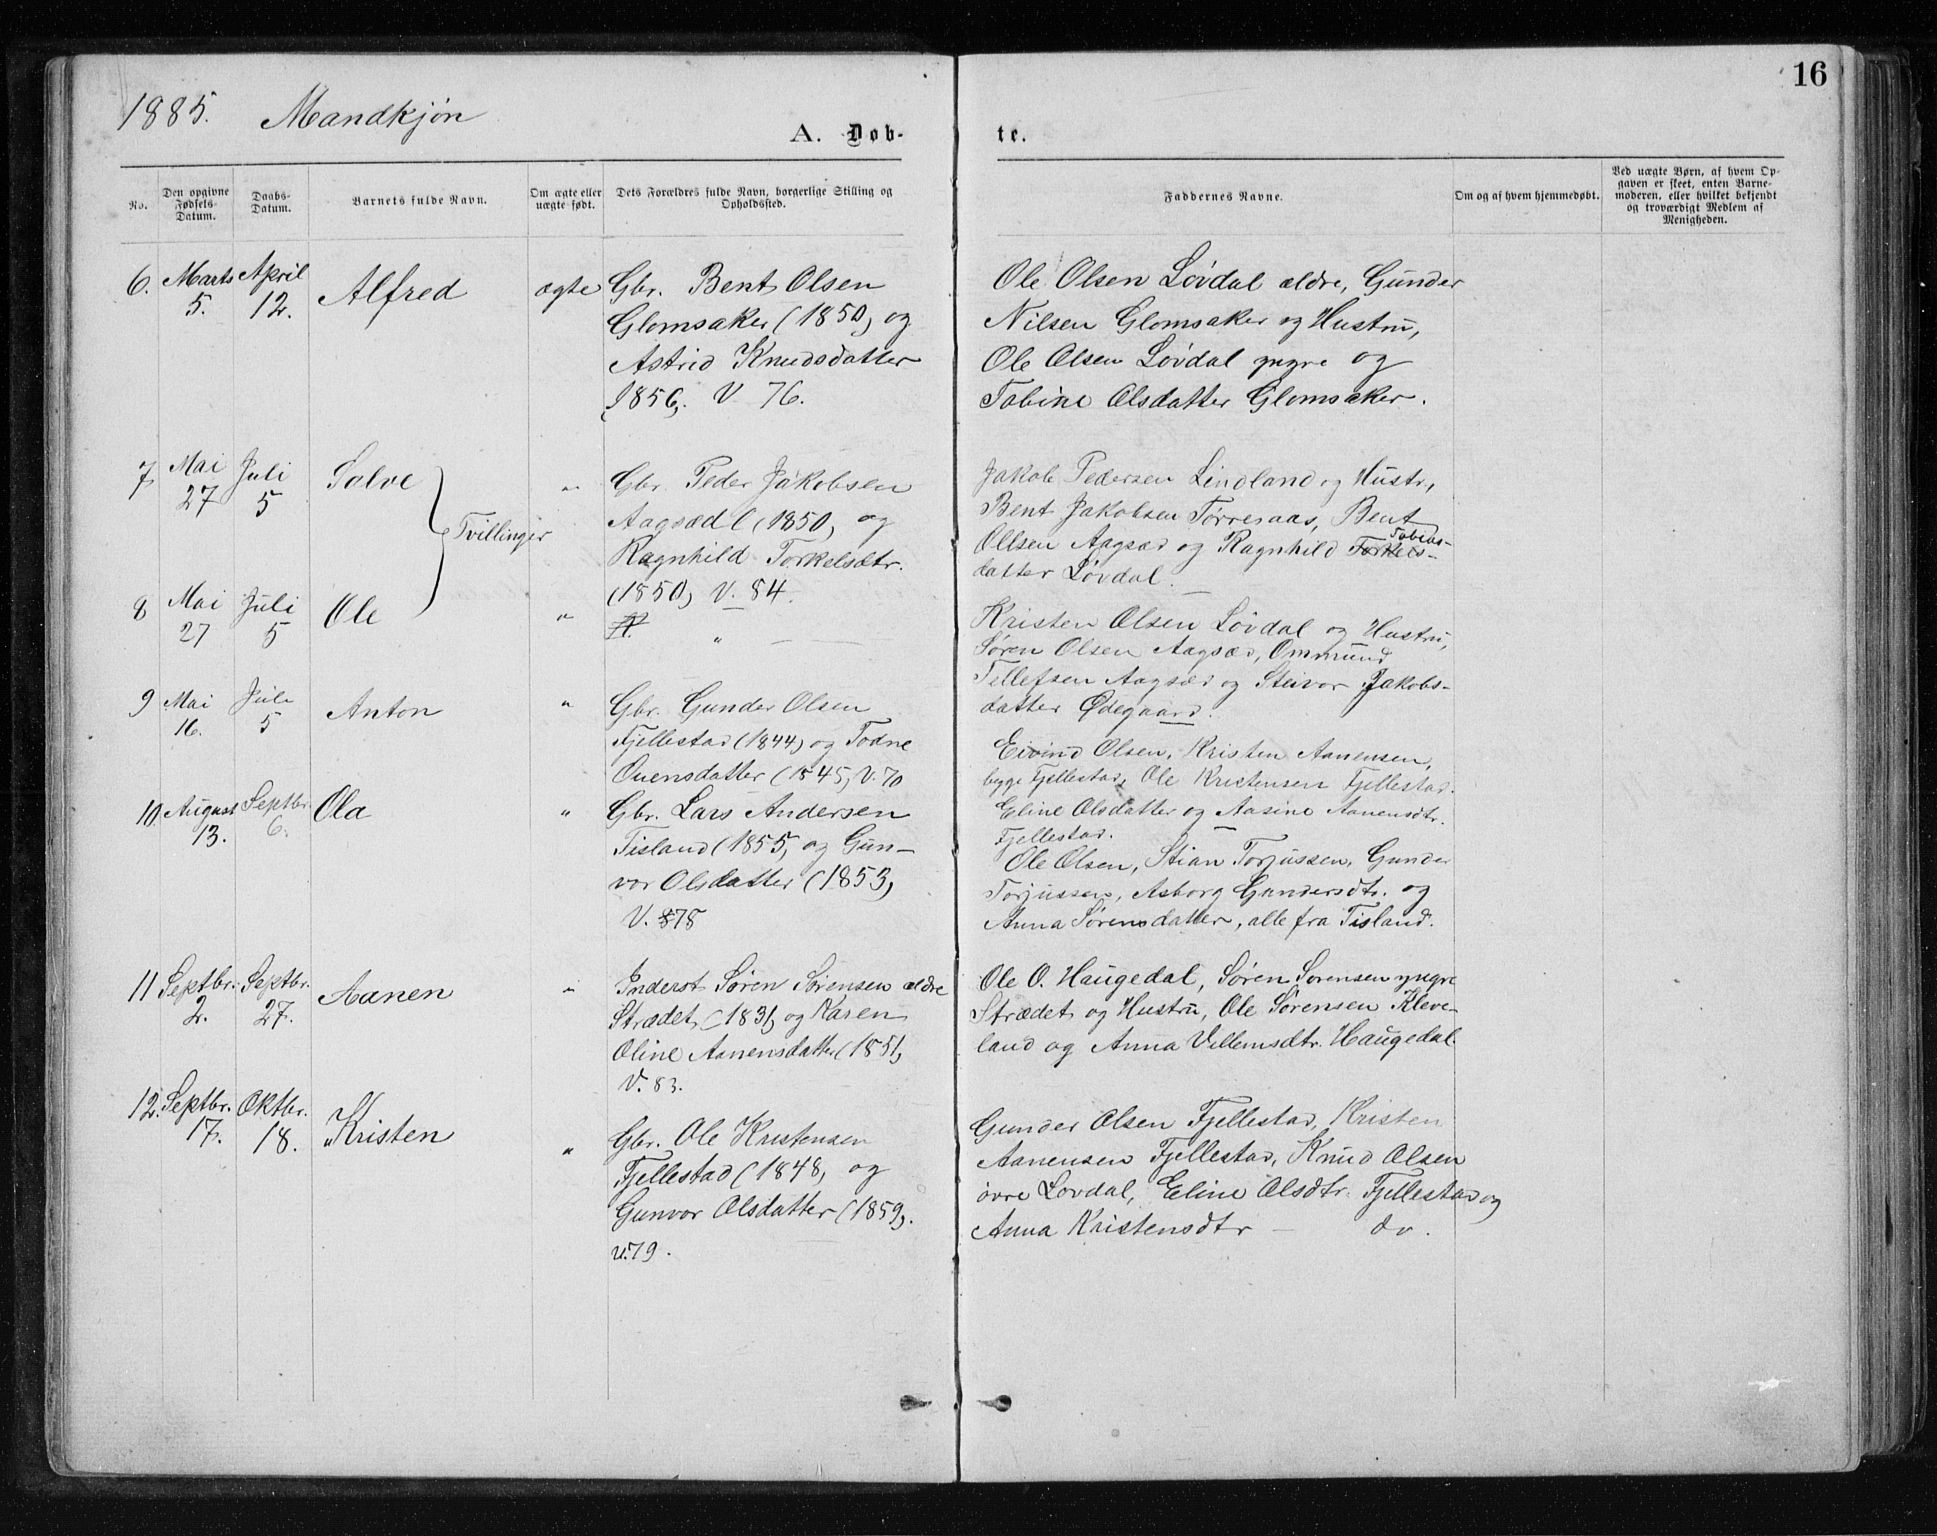 16
1885. Mandkjøn
A. Døb-
te.
No.
Den opgivne Fødsels-Datum.
Daabs-Datum.
Barnets fulde Navn.
Om ægte eller uægte født.
Dets Forældres fulde Navn, borgerlige Stilling og Opholdssted.
Faddernes Navne.
Om og af hvem hjemmedøbt.
Ved uægte Børn, af hvem Op-
gaven er skeet, enten Barne-
moderen, eller hvilket bekjendt
og troværdigt Medlem af
Menigheden.
6. Marts 5. April 12. Alfred ægte
Gbr. Bent Olsen
Glomsaker (1850) og
Astrid Knudsdatter
(1856). V 76.
Ole Olsen Lövdal ældre, Gunder
Nilsen Glomsaker og Hustru,
Ole Olsen Lövdal yngre og
Tobine Olsdatter Glomsaker.
7. Mai 27 Juli 5 Salve "
Tvillinger
Gbr. Peder Jakobsen
Aagsæd (1850) og
Ragnhild Torkelsdtr.
(1850) V. 84.
Jakob Pedersen Lindland og Hustr.,
Bent Jakobsen Torresaas, Bent
Ollsen Aagsæd og Ragnhild Torkels- Tobias-
datter Lövdal.
8 Mai 27 Juli 5 Ole "
" —
Kristen Olsen Lövdal og Hustru,
Søren Olsen Aagsæd, Ommund
Tellefsen Aagsæd og Steivor Jakobs-
datter Ødegaard.
9 Mai 16. Juli 5 Anton "
Gbr. Gunder Olsen
Fjellestad (1844) og Todne
Ouensdatter (1845) V. 70
Eivind Olsen, Kristen Aanensen,
begge Fjellestad, Ole Kristensen Fjellestad.
Eline Olsdatter og Aasine Aanensdtr.
Fjellestad.
10. August 13. Septbr. 6. Ola "
Gbr. Lars Andersen
Tisland (1855) og Gun-
vor Olsdatter (1853)
V. 878
Ole Olsen, Stian Torjussen, Gunder
Torjussen, Asborg Gundersdtr. og
Anna Sørensdatter, alle fra Tisland.
11 Septbr. 2. Septbr. 27. Aanen "
Inderst Søren Sørensen ældre
Strædet (1831) og Karen
Oline Aanensdatter (1851)
V. 83.
Ole O. Haugedal, Søren Sørensen yngre
Strædet og Hustru, Ole Sørensen Kleve-
land og Anna Villemsdtr. Haugedal.
12. Septbr. 17. Oktbr. 18. Kristen "
Gbr. Ole Kristensen
Fjellestad (1848) og
Gunvor Olsdatter (1859).
v. 79.
Gunder Olsen Fjellestad, Kristen
Aanensen Fjellestad, Knud Olsen
övre Lovdal, Eline Olsdtr. Fjellestad og
Anna Kristensdtr — do.